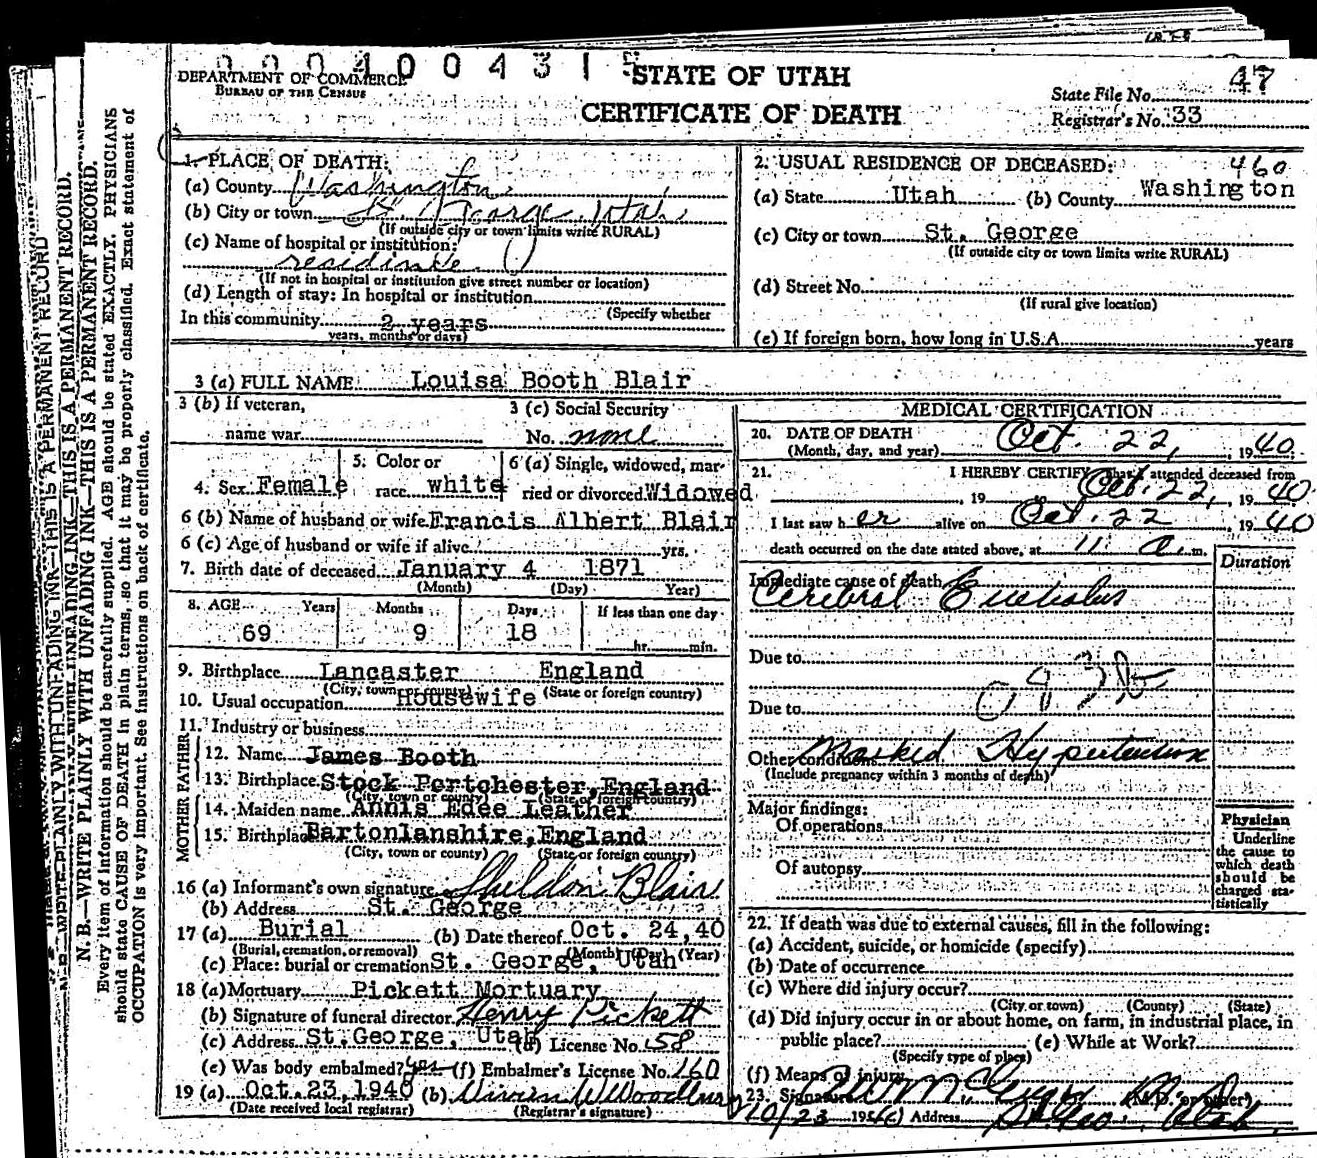 0 0 0 4 0 0 0 4 3 1 5
DEPARTMENT OF COMMERCE
BUREAU OF THE CENSUS
STATE OF UTAH
CERTIFICATE OF DEATH
State File No. 47
Registrar's No. 33
N. B.—WRITE PLAINLY WITH UNFADING INK—THIS IS A PERMANENT RECORD.
Every item of information should be carefully supplied. AGE should be stated EXACTLY. PHYSICIANS
should state CAUSE OF DEATH in plain terms, so that it may be properly classified. Exact statement of
OCCUPATION is very important. See instructions on back of certificate.
1. PLACE OF DEATH:
(a) County Washington
(b) City or town St. George, Utah
(If outside city or town limits write RURAL)
(c) Name of hospital or institution:
residince
(If not in hospital or institution give street number or location)
(d) Length of stay: In hospital or institution
(Specify whether
In this community 2 years
years, months or days)
2. USUAL RESIDENCE OF DECEASED: 460
(a) State Utah (b) County Washington
(c) City or town St. George
(If outside city or town limits write RURAL)
(d) Street No.
(If rural give location)
(e) If foreign born, how long in U.S.A. years
3 (a) FULL NAME Louisa Booth Blair
3 (b) If veteran,
name war
3 (c) Social Security
No. none
4. Sex Female
5. Color or
race white
6 (a) Single, widowed, mar-
ried or divorced Widowed
6 (b) Name of husband or wife Francis Albert Blair
6 (c) Age of husband or wife if alive yrs.
7. Birth date of deceased January 4 1871
(Month) (Day) Year)
8. AGE Years Months Days If less than one day
69 9 18 hr. min.
9. Birthplace Lancaster England
(City, town or county) (State or foreign country)
10. Usual occupation Housewife
11. Industry or business
FATHER
12. Name James Booth
13. Birthplace Stock Portchester, England
(City, town or county) (State or foreign country)
MOTHER
14. Maiden name Annis Edee Leather
15. Birthplace Bartonianshire, England
(City, town or county) (State or foreign country)
16 (a) Informant's own signature Sheldon Blair
(b) Address St. George
17 (a) Burial (b) Date thereof Oct. 24, 40
(Burial, cremation, or removal) (Month) (Day) (Year)
(c) Place: burial or cremation St. George, Utah
18 (a) Mortuary Pickett Mortuary
(b) Signature of funeral director Henry Pickett
(c) Address St. George, Utah (d) License No. 158
(e) Was body embalmed? yes (f) Embalmer's License No. 160
19 (a) Oct. 23, 1940 (b) Vivian W Woodbury
(Date received local registrar) (Registrar's signature)
MEDICAL CERTIFICATION
20. DATE OF DEATH Oct. 22, 1940
(Month, day, and year)
21. I HEREBY CERTIFY That I attended deceased from
, 19 to Oct. 22, 1940
I last saw her alive on Oct. 22, 1940
death occurred on the date stated above, at 11 a. m.
Duration
Immediate cause of death
Cerebral
Due to
Due to
Other conditions Marked Hypertension
(Include pregnancy within 3 months of death)
Major findings:
Of operations
Of autopsy
Physician
Underline
the cause to
which death
should be
charged sta-
tistically
22. If death was due to external causes, fill in the following:
(a) Accident, suicide, or homicide (specify)
(b) Date of occurrence
(c) Where did injury occur?
(City or town) (County) (State)
(d) Did injury occur in or about home, on farm, in industrial place, in
public place? (e) While at Work?
(Specify type of place)
(f) Means of injury
23. Signature (M.D. or other)
10/23 1940 Address St. Geo. Utah.